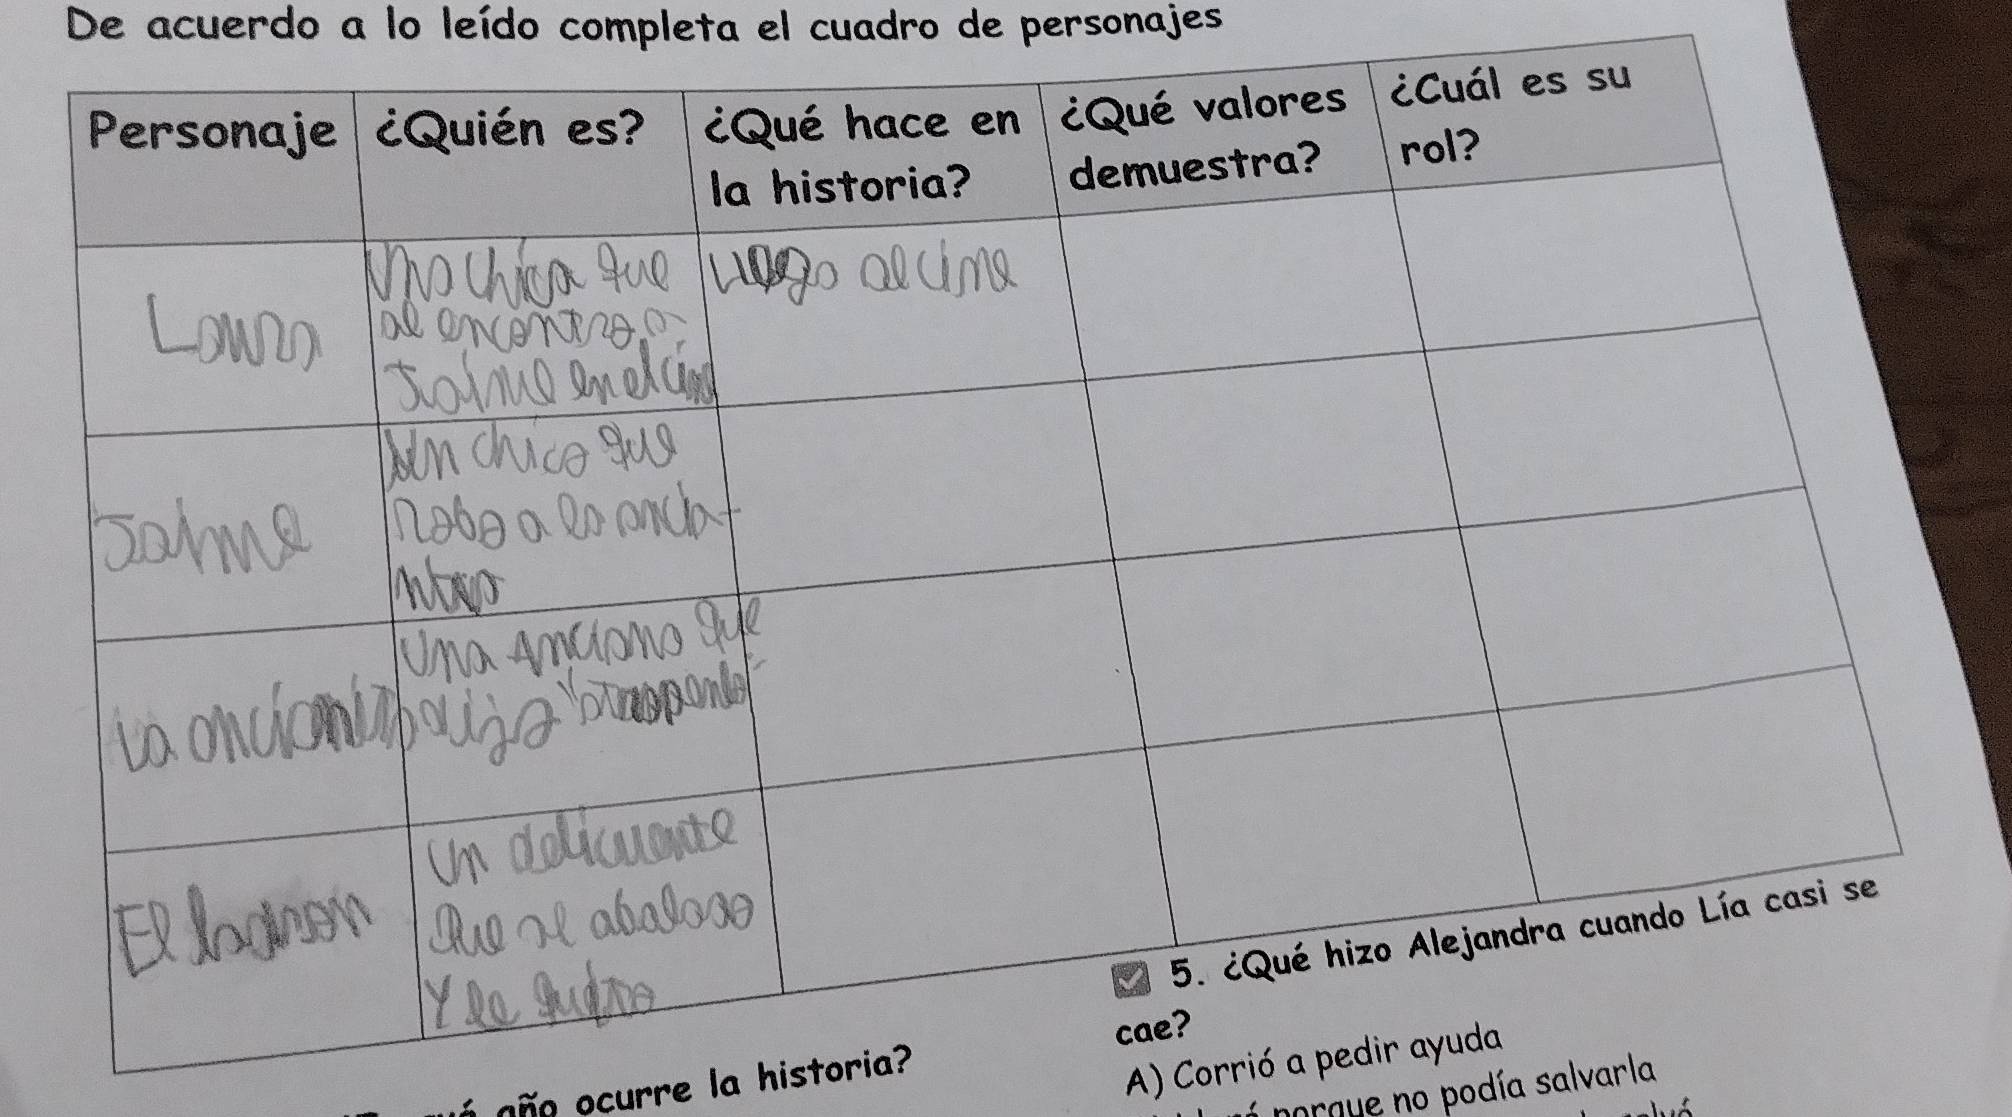 De acuerdo a lo leído completa el cuadro de personajes
Personaje
¿Quién es?
¿Qué hace en
la historia?
¿Qué valores
demuestra?
¿Cuál es su
rol?
Laura
Una chica que
al encontro a
Jaime en el cine
Llego al cine
Jaime
un chico que
robo a la ancia-
La ancianita
Una Anciana que
dijo
El ladron
un delicuente
Que se abaloso
Y le quitro
5. ¿Qué hizo Alejandra cuando Lía casi se
cae?
A) Corrió a pedir ayuda
porque no podía salvarla
año ocurre la historia?